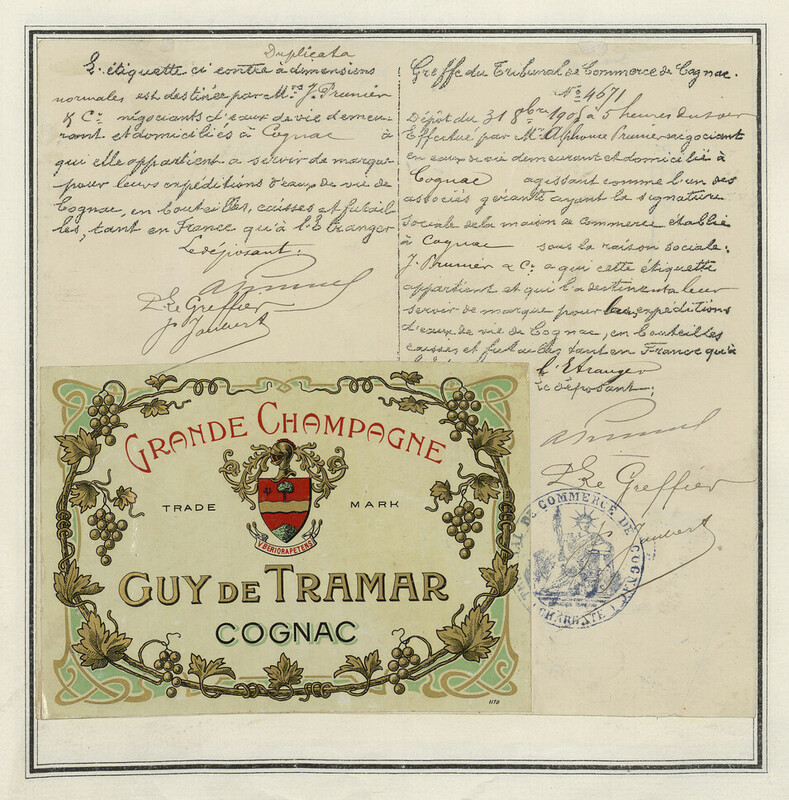 Duplicata
L'étiquette ci contre à dimensions
normales est destinée par Mrs J. Prunier
& Cie négociants d'eaux de vie demeu-
rant et domiciliés à Cognac à
qui elle appartient a servir de marque
pour leurs expéditions d'eaux de vie de
Cognac, en bouteilles, caisses et futail-
les, tant en France qu'à l'Etranger
Le déposant:
Le Greffier
Joubert
Greffe du Tribunal de Commerce de Cognac.
No 4671
Dépôt du 31 8bre à 5 heures du soir
Effectué par Mr Alphonse Prunier négociant
en eaux de vie demeurant et domicilié à
Cognac agissant comme l'un des
associés gérants ayant la signature
sociale de la maison de commerce établie
à Cognac sous la raison sociale:
J. Prunier & Cie a qui cette étiquette
appartient et qui l'a destinent a leur
servir de marque pour les expéditions
d'eaux de vie de Cognac, en bouteilles
caisses et futailles tant en France qu'à
l'Etranger
Le déposant:
Le Greffier
Joubert
TRIBUNAL DE COMMERCE DE COGNAC
(CHARENTE)
GRANDE CHAMPAGNE
TRADE MARK
VBERIORAPETENS
GUY DE TRAMAR
COGNAC
1178